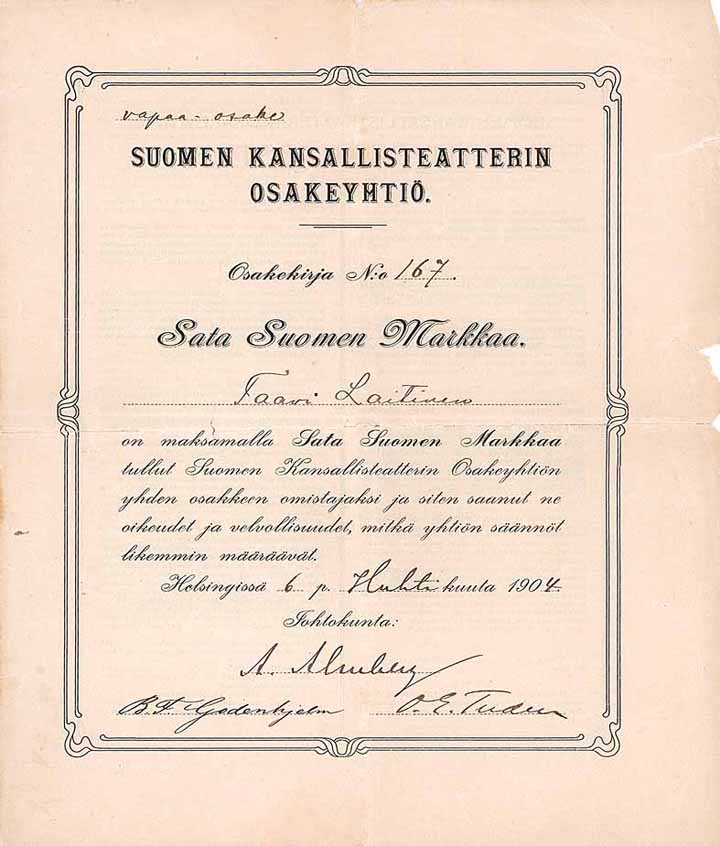 vapaa-osake
SUOMEN KANSALLISTEATTERIN
OSAKEYHTIÖ.
Osakekirja N:o 167.
Sata Suomen Markkaa.
Taavi Laitinen
on maksamalla Sata Suomen Markkaa
tullut Suomen Kansallisteatterin Osakeyhtiön
yhden osakkeen omistajaksi ja siten saanut ne
oikeudet ja velvollisuudet, mitkä yhtiön säännöt
likemmin määräävät.
Helsingissä 6 p. Huhtikuuta 1904.
Johtokunta:
A. Almberg
B. F. Godenhjelm O. E. Tudeer